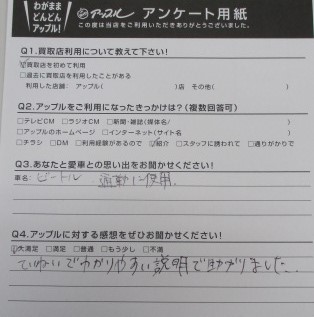 わがまま
どんどん
アップル!
アップル アンケート用紙
この度は当店をご利用いただきありがとうございました。
Q1.買取店利用について教えて下さい!
☑買取店を初めて利用
□過去に買取店を利用したことがある
利用した店舗: アップル( )店 その他( )
Q2.アップルをご利用になったきっかけは?(複数回答可)
□テレビCM □ラジオCM □新聞・雑誌(媒体名/ )
□アップルのホームページ □インターネット(サイト名 )
□チラシ □DM □利用経験があるので ☑紹介 □スタッフに誘われて □通りがかりで
Q3.あなたと愛車との思い出をお聞かせください!
車名: ビートル 通勤に使用.
Q4.アップルに対する感想をぜひお聞かせください!
☑大満足 □満足 □普通 □もう少し □不満
ていねいでわかりやすい説明で助かりました.